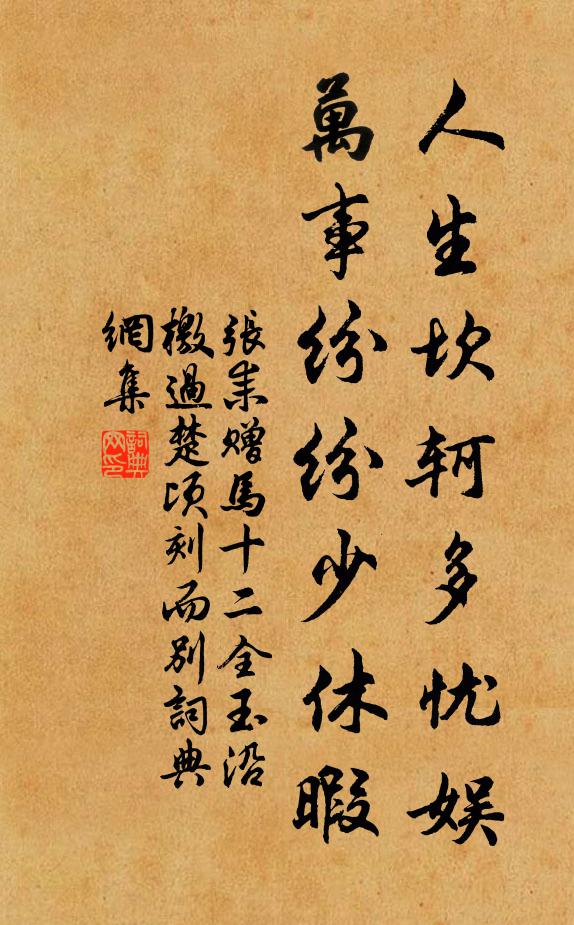 人生坎軻多忧娱
萬事纷纷少休暇
張耒贈馬十二全玉沿
檄過楚頃刻而别詞典
網集
詞典
网印